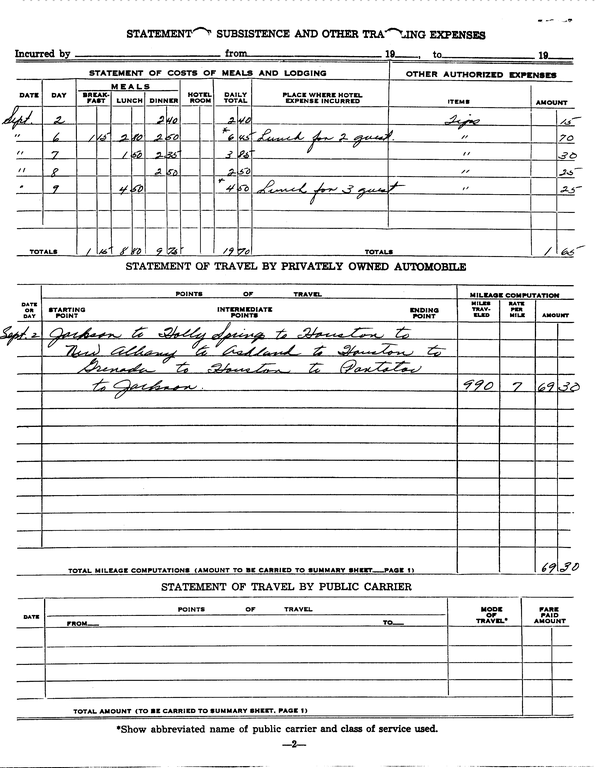 STATEMENT SUBSISTENCE AND OTHER TRA LING EXPENSES
Incurred by from 19 , to 19
STATEMENT OF COSTS OF MEALS AND LODGING OTHER AUTHORIZED EXPENSES
MEALS
DATE DAY BREAK-FAST LUNCH DINNER HOTEL ROOM DAILY TOTAL PLACE WHERE HOTEL EXPENSE INCURRED ITEMS AMOUNT
Sept. 2 2 40 2 40 Tips 15
" 6 1 15 2 80 2 50 * 6 45 Lunch for 2 guest. " 70
" 7 1 50 2 35 3 85 " 30
" 8 2 50 2 50 " 25
" 9 4 50 * 4 50 Lunch for 3 guest " 25
TOTALS 1 15 8 80 9 75 19 70 TOTALS 1 65
STATEMENT OF TRAVEL BY PRIVATELY OWNED AUTOMOBILE
POINTS OF TRAVEL MILEAGE COMPUTATION
DATE OR DAY STARTING POINT INTERMEDIATE POINTS ENDING POINT MILES TRAV-ELED RATE PER MILE AMOUNT
Sept. 2 Jackson to Holly Spring to Houston to
New Albany to Ashland to Houston to
Grenada to Houston to Pontotoc
to Jackson. 990 7 69 30
TOTAL MILEAGE COMPUTATIONS (AMOUNT TO BE CARRIED TO SUMMARY SHEET—PAGE 1) 69 30
STATEMENT OF TRAVEL BY PUBLIC CARRIER
DATE POINTS OF TRAVEL MODE OF TRAVEL* FARE PAID AMOUNT
FROM— TO—
TOTAL AMOUNT (TO BE CARRIED TO SUMMARY SHEET, PAGE 1)
*Show abbreviated name of public carrier and class of service used.
—2—